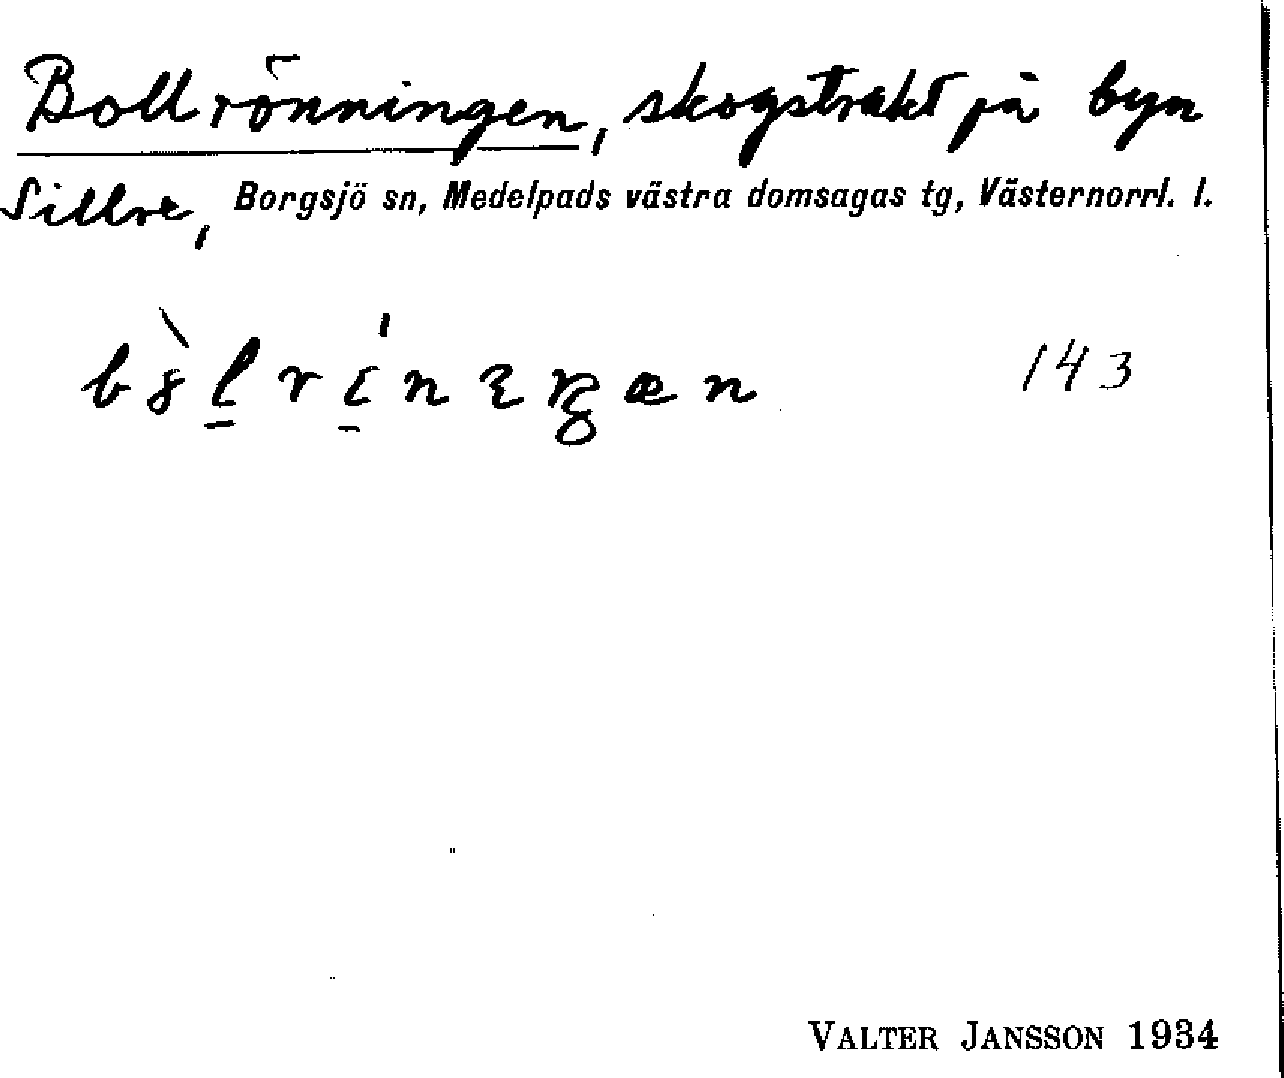 Bollrönningen, skogstrakt på byn
Sillre, Borgsjö sn, Medelpads västra domsagas tg, Västernorrl. l.
143
VALTER JANSSON 1934